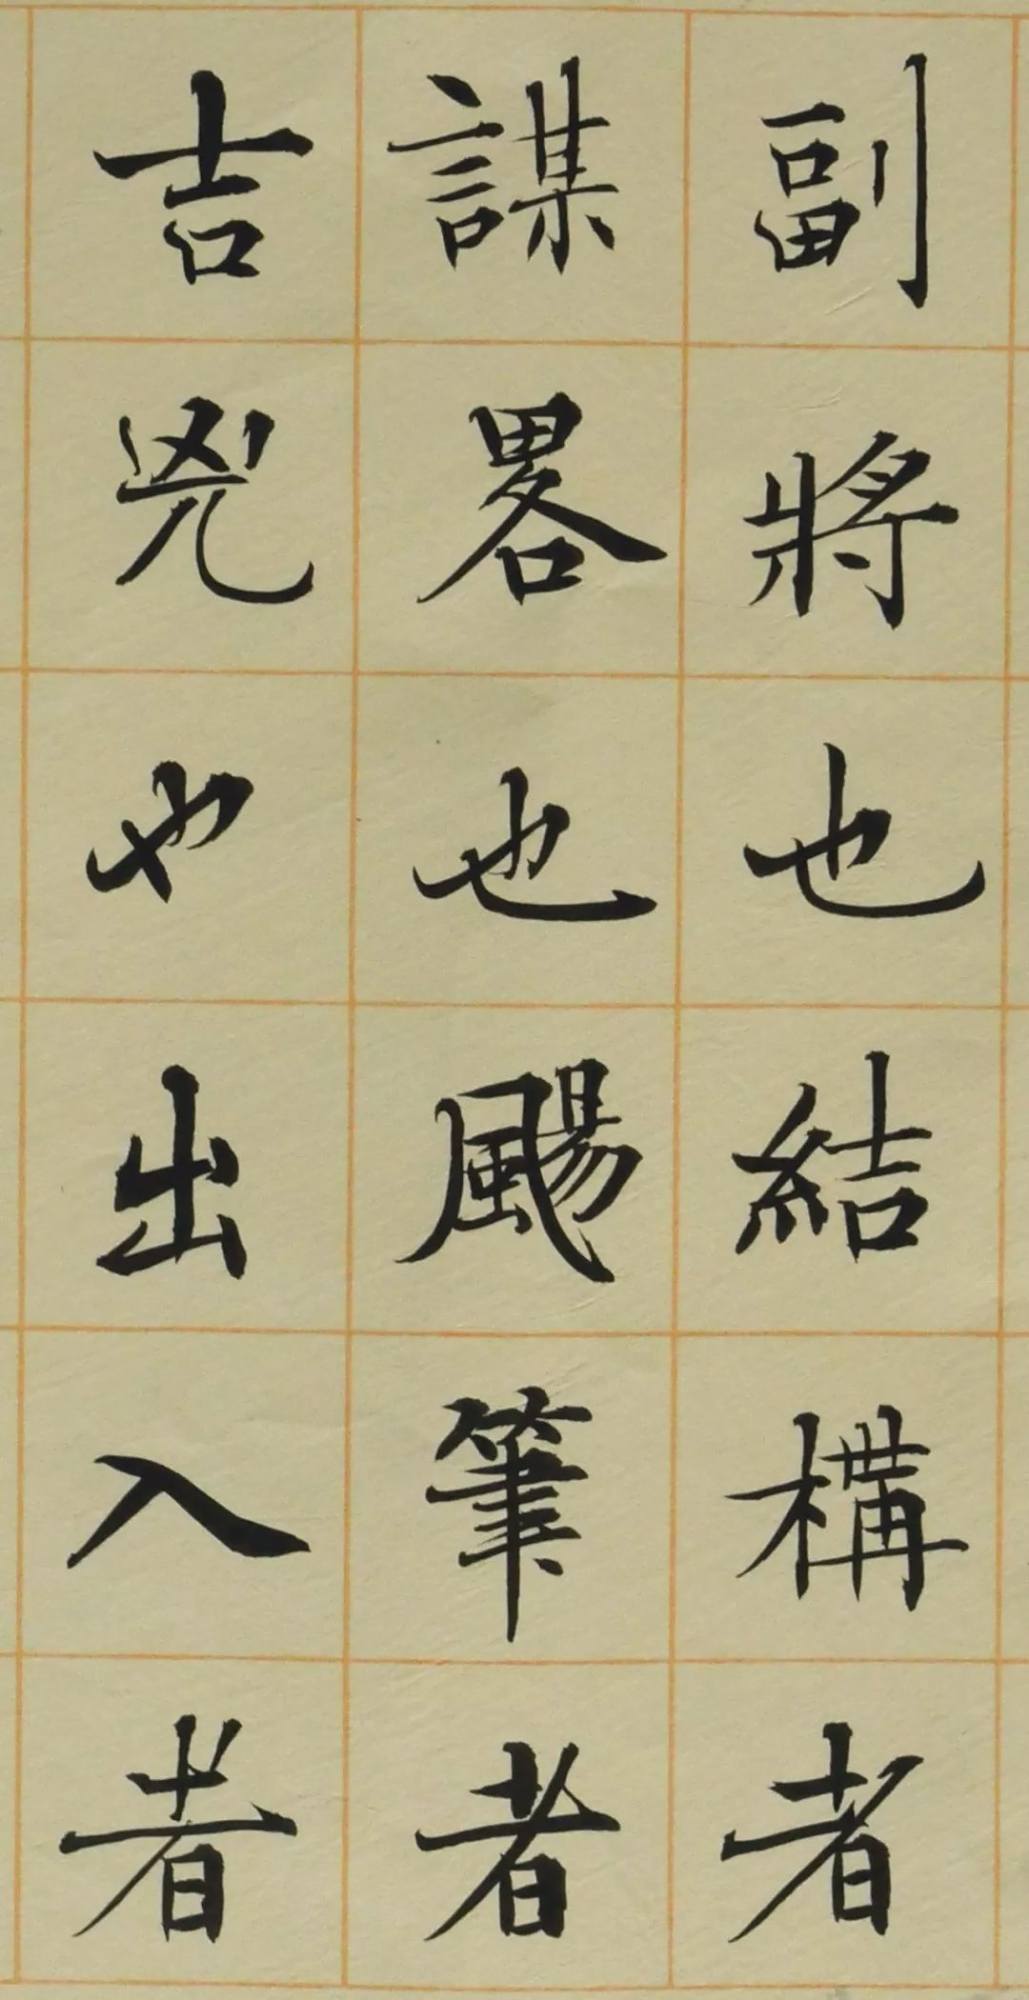 副將也結構者
謀畧也颺筆者
吉兇也出入者